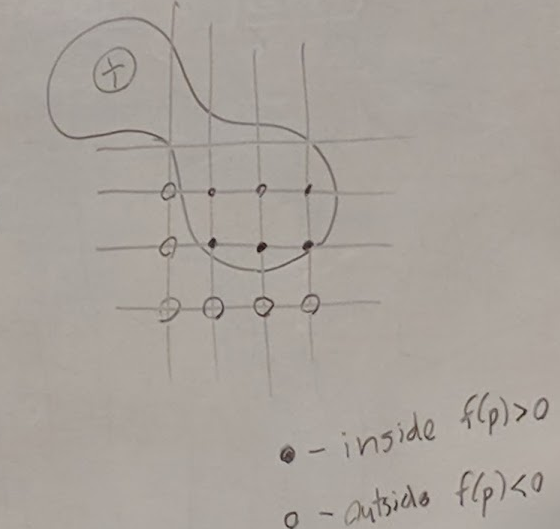 +
• - inside f(p)>0
o - outside f(p)<0